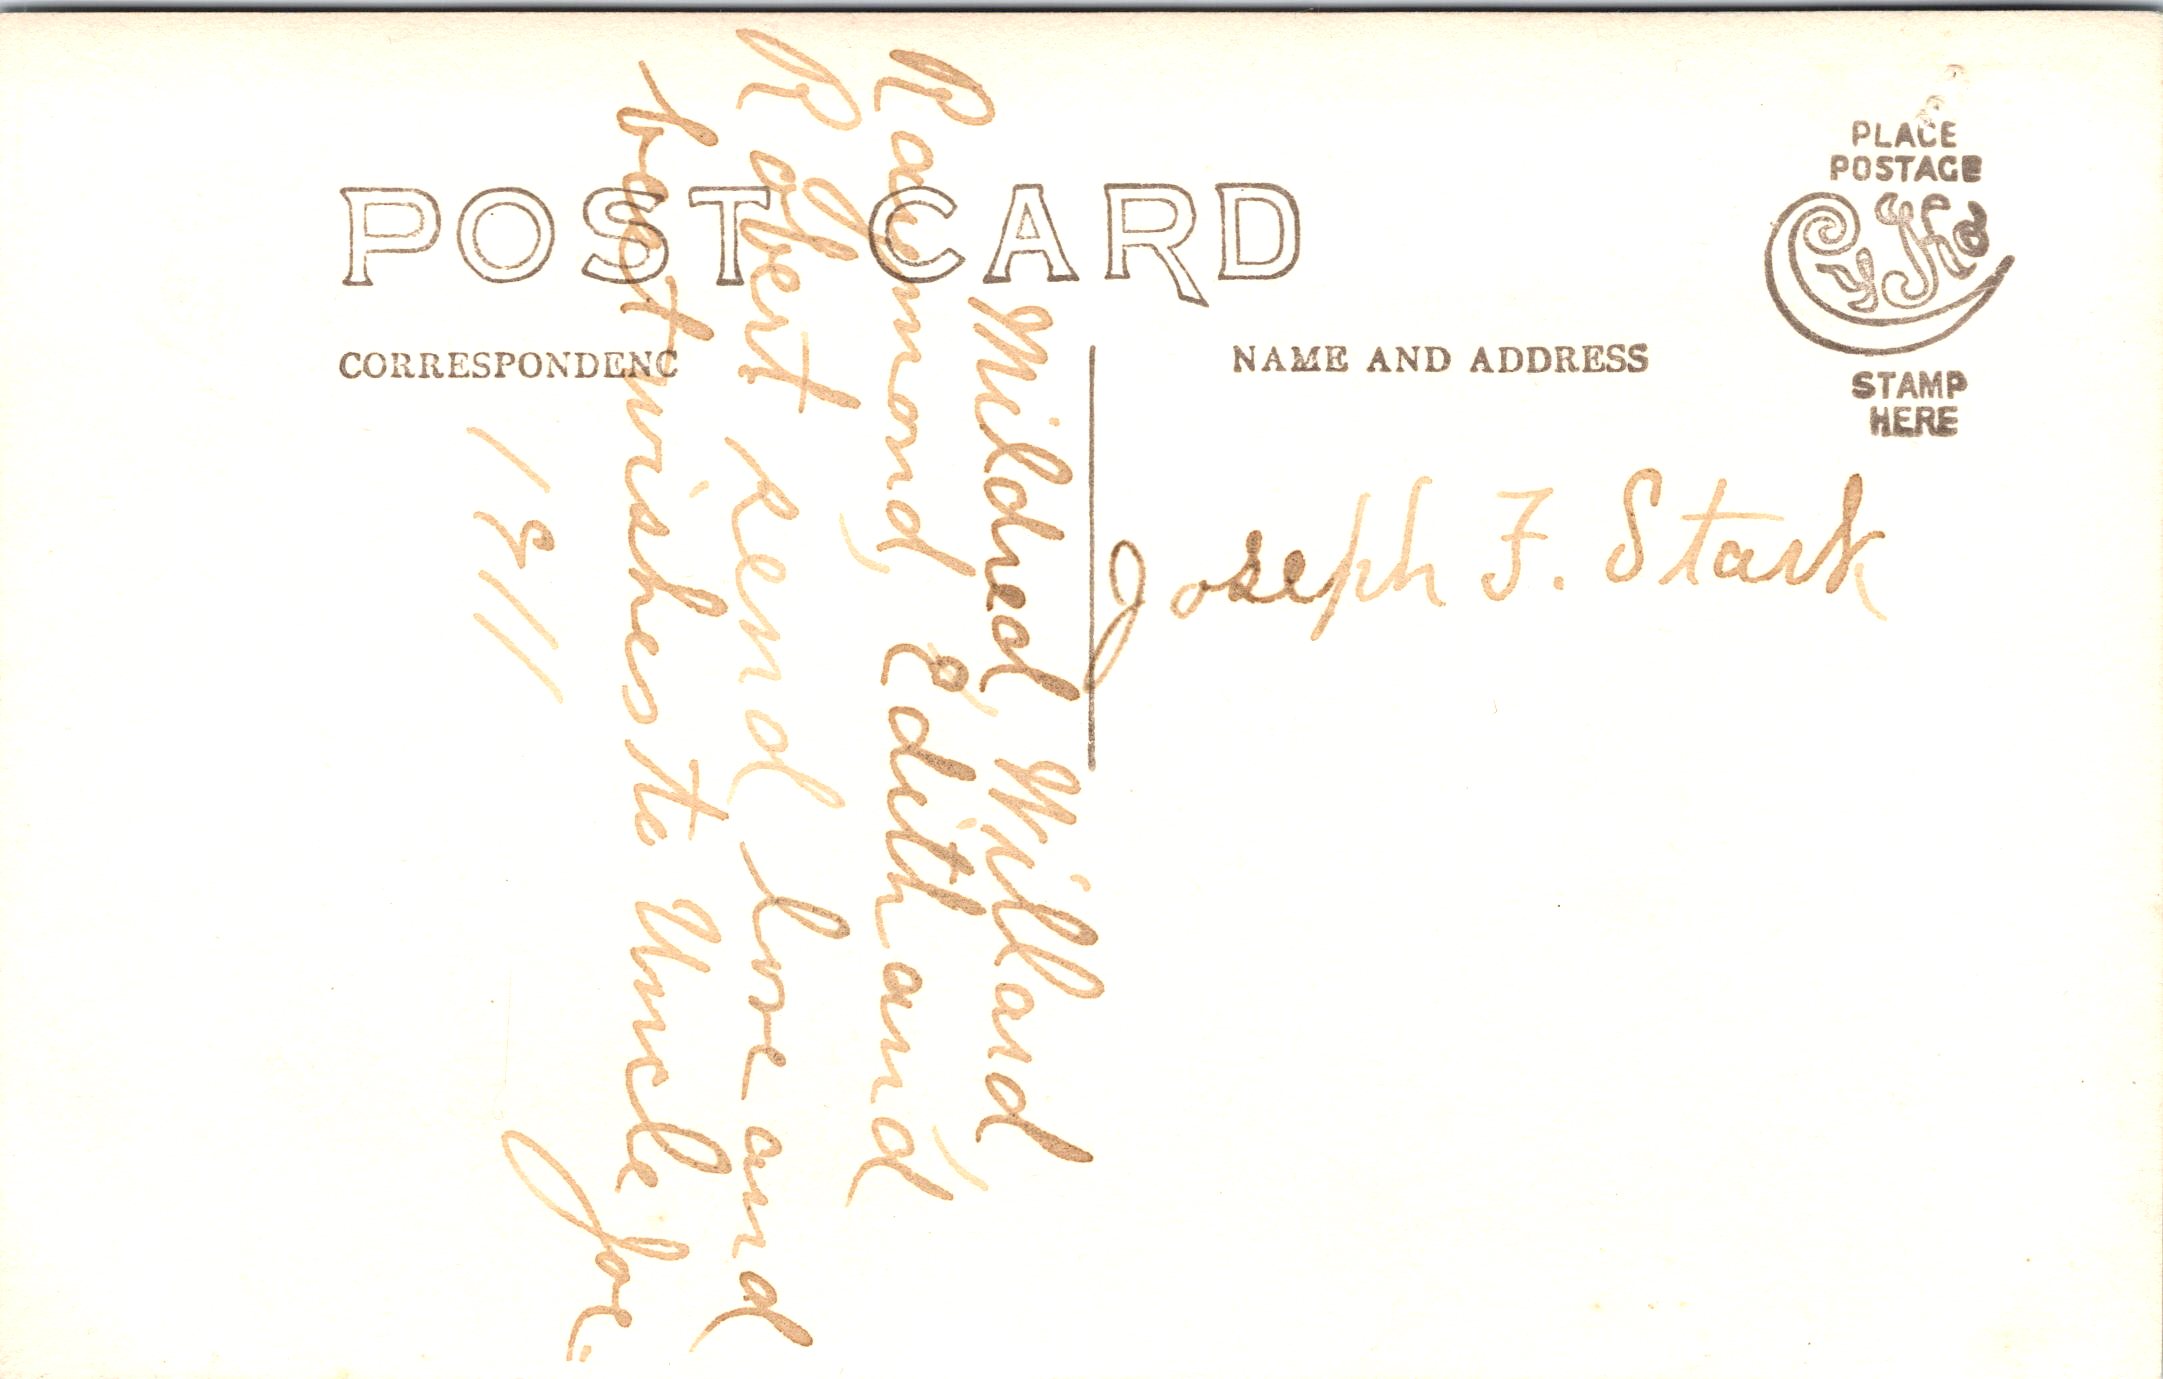 POST CARD
PLACE
POSTAGE
STAMP
HERE
CORRESPONDENC
NAME AND ADDRESS
Joseph F. Stark
Mildred, Willard
Raymond, Edith and
Robert send love and
best wishes to Uncle
Joe.
1911